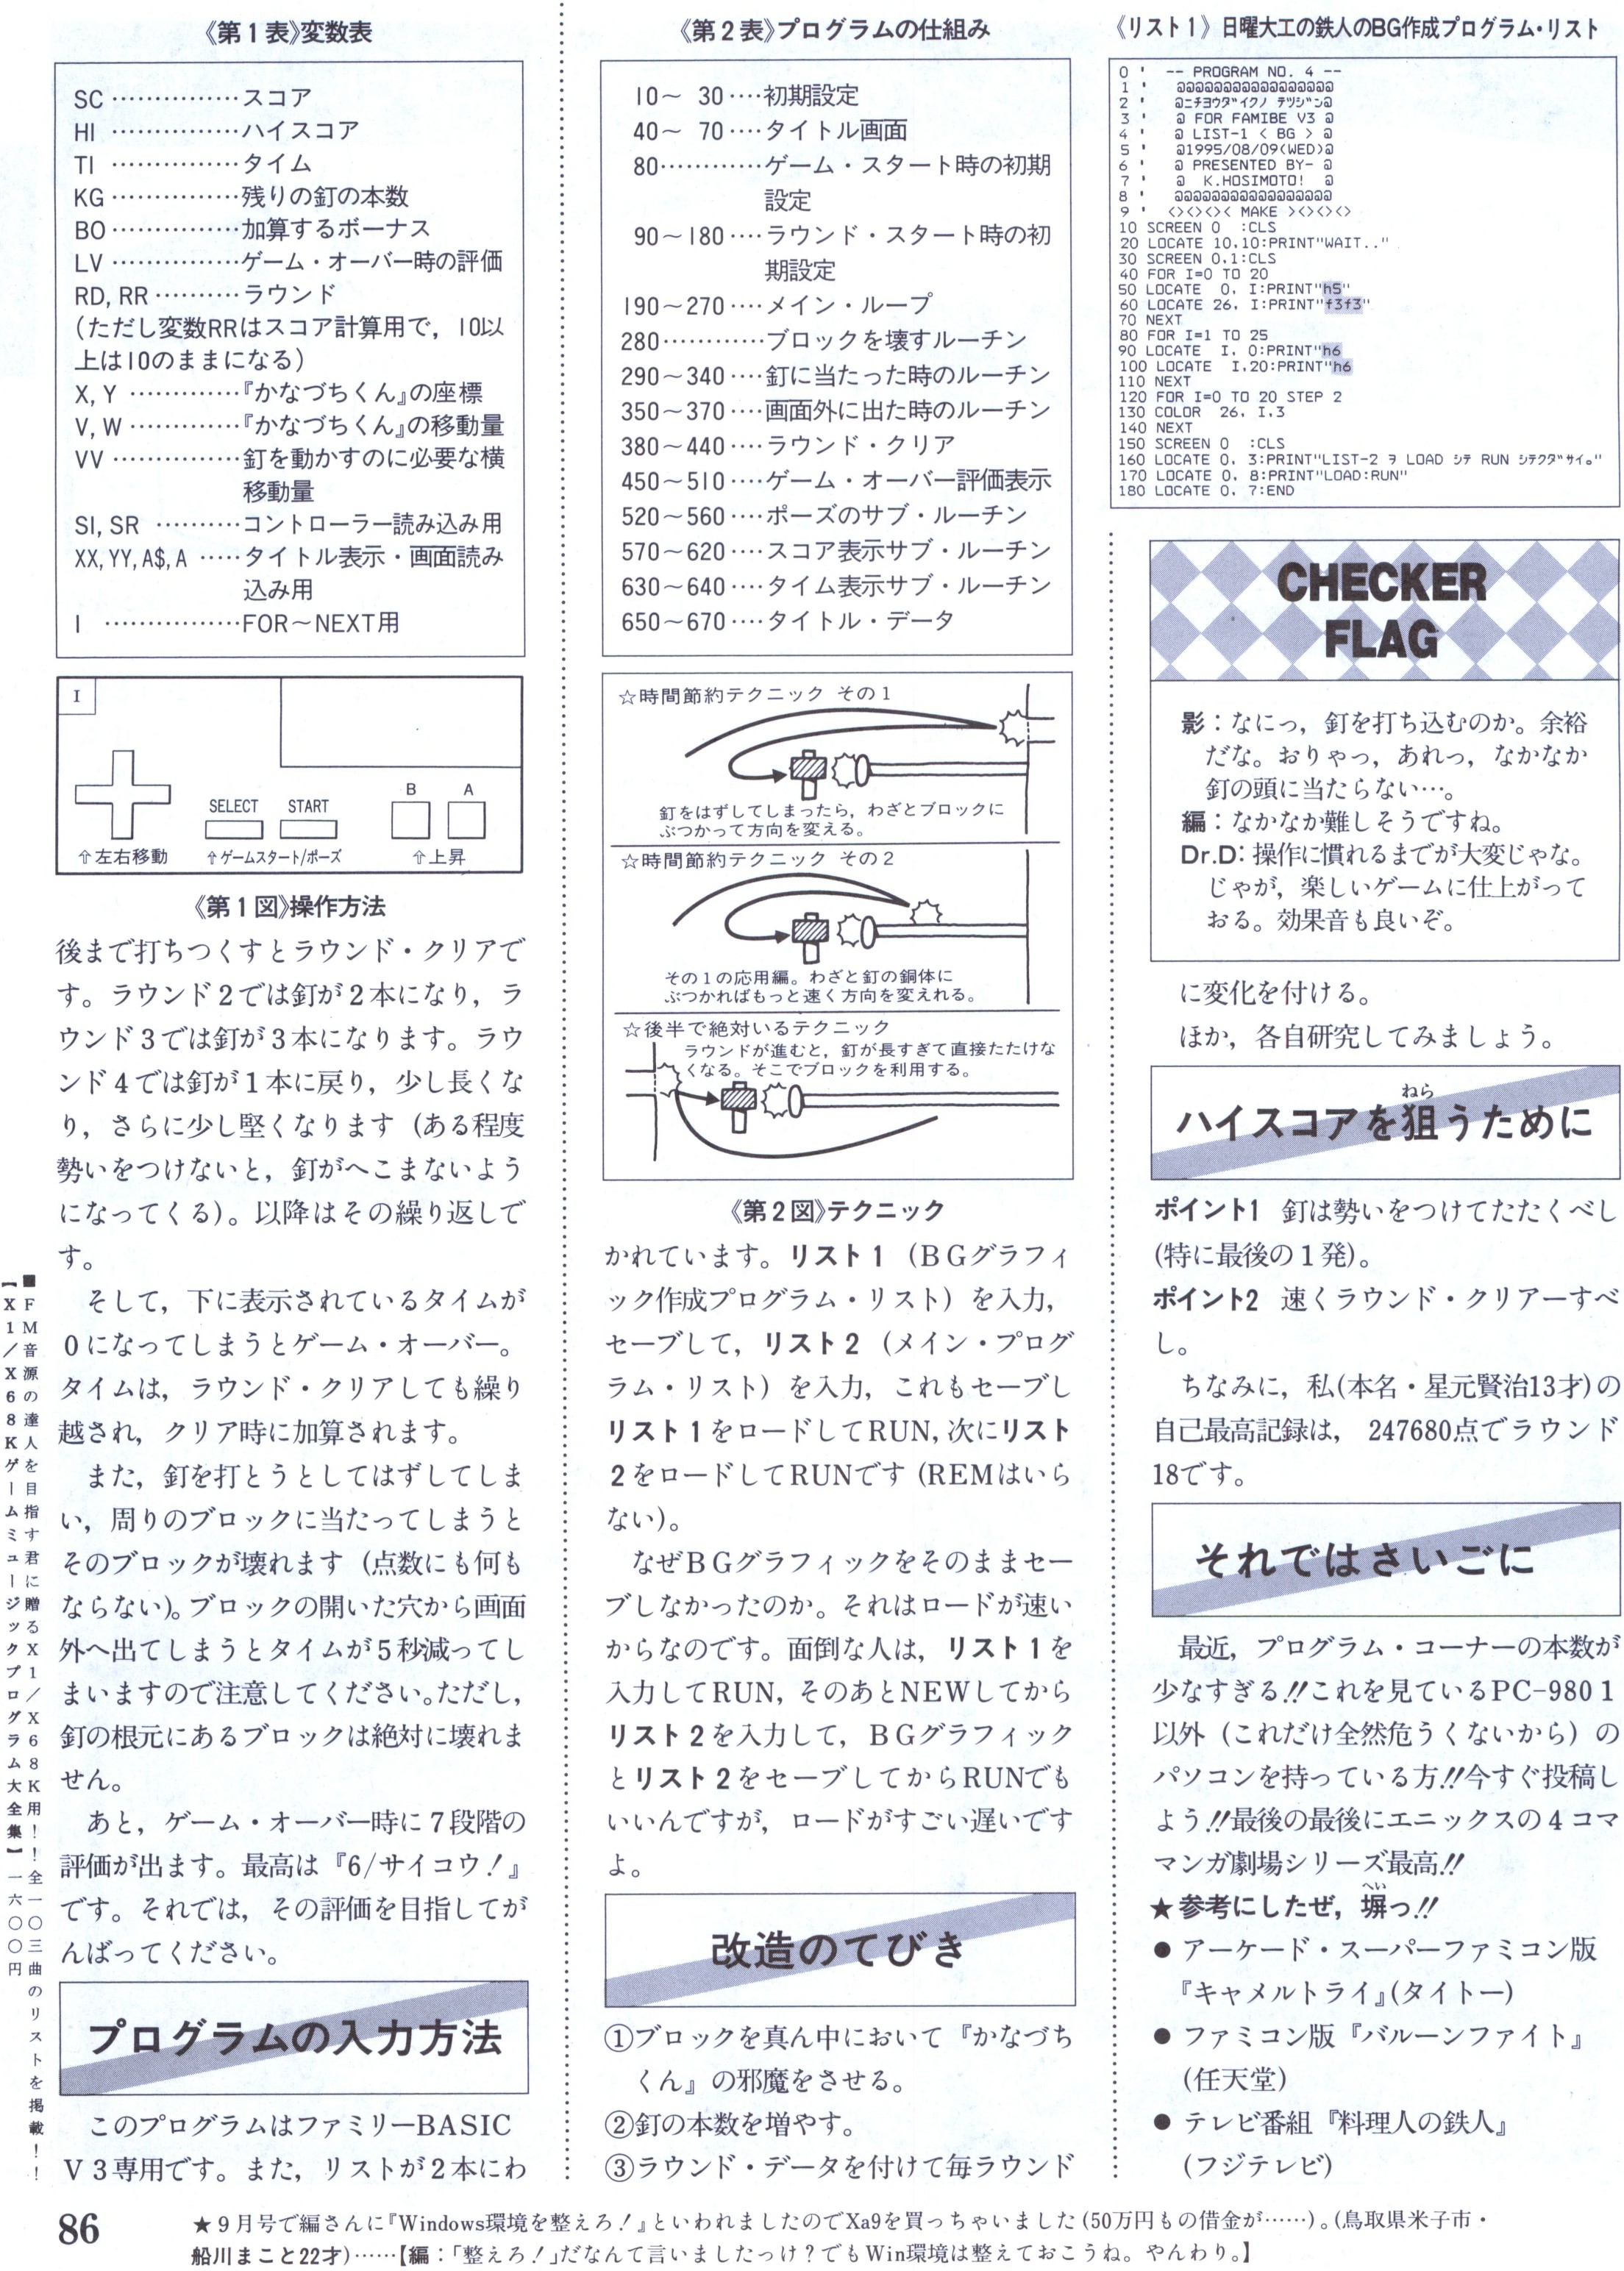 《第1表》変数表
SC ……………スコア
HI ……………ハイスコア
TI ……………タイム
KG ……………残りの釘の本数
BO ……………加算するボーナス
LV ……………ゲーム・オーバー時の評価
RD, RR ………ラウンド
(ただし変数RRはスコア計算用で，10以
上は10のままになる)
X, Y …………『かなづちくん』の座標
V, W …………『かなづちくん』の移動量
VV ……………釘を動かすのに必要な横
移動量
SI, SR ………コントローラー読み込み用
XX, YY, A$, A ……タイトル表示・画面読み
込み用
I ……………FOR～NEXT用
I
SELECT START B A
⇧左右移動 ⇧ゲームスタート/ポーズ ⇧上昇
《第1図》操作方法
後まで打ちつくすとラウンド・クリアで
す。ラウンド2では釘が2本になり，ラ
ウンド3では釘が3本になります。ラウ
ンド4では釘が1本に戻り，少し長くな
り，さらに少し堅くなります（ある程度
勢いをつけないと，釘がへこまないよう
になってくる)。以降はその繰り返しで
す。
そして，下に表示されているタイムが
0になってしまうとゲーム・オーバー。
タイムは，ラウンド・クリアしても繰り
越され，クリア時に加算されます。
また，釘を打とうとしてはずしてしま
い，周りのブロックに当たってしまうと
そのブロックが壊れます（点数にも何も
ならない)。ブロックの開いた穴から画面
外へ出てしまうとタイムが5秒減ってし
まいますので注意してください。ただし，
釘の根元にあるブロックは絶対に壊れま
せん。
あと，ゲーム・オーバー時に7段階の
評価が出ます。最高は『6/サイコウ！』
です。それでは，その評価を目指してが
んばってください。
プログラムの入力方法
このプログラムはファミリーBASIC
V3専用です。また，リストが2本にわ
《第2表》プログラムの仕組み
10～ 30‥‥初期設定
40～ 70‥‥タイトル画面
80…………ゲーム・スタート時の初期
設定
90～180‥‥ラウンド・スタート時の初
期設定
190～270‥‥メイン・ループ
280…………ブロックを壊すルーチン
290～340‥‥釘に当たった時のルーチン
350～370‥‥画面外に出た時のルーチン
380～440‥‥ラウンド・クリア
450～510‥‥ゲーム・オーバー評価表示
520～560‥‥ポーズのサブ・ルーチン
570～620‥‥スコア表示サブ・ルーチン
630～640‥‥タイム表示サブ・ルーチン
650～670‥‥タイトル・データ
☆時間節約テクニック その1
釘をはずしてしまったら，わざとブロックに
ぶつかって方向を変える。
☆時間節約テクニック その2
その1の応用編。わざと釘の銅体に
ぶつかればもっと速く方向を変えれる。
☆後半で絶対いるテクニック
ラウンドが進むと，釘が長すぎて直接たたけな
くなる。そこでブロックを利用する。
《第2図》テクニック
かれています。リスト1（BGグラフィ
ック作成プログラム・リスト）を入力，
セーブして，リスト2（メイン・プログ
ラム・リスト）を入力，これもセーブし
リスト1をロードしてRUN，次にリスト
2をロードしてRUNです（REMはいら
ない)。
なぜBGグラフィックをそのままセー
ブしなかったのか。それはロードが速い
からなのです。面倒な人は，リスト1を
入力してRUN，そのあとNEWしてから
リスト2を入力して，BGグラフィック
とリスト2をセーブしてからRUNでも
いいんですが，ロードがすごい遅いです
よ。
改造のてびき
①ブロックを真ん中において『かなづち
くん』の邪魔をさせる。
②釘の本数を増やす。
③ラウンド・データを付けて毎ラウンド
《リスト1》日曜大工の鉄人のBG作成プログラム・リスト
0 ' -- PROGRAM NO. 4 --
1 ' @@@@@@@@@@@@@@@@@@
2 ' @ニチヨウダイクノ テツジン@
3 ' @ FOR FAMIBE V3 @
4 ' @ LIST-1 < BG > @
5 ' @1995/08/09(WED)@
6 ' @ PRESENTED BY- @
7 ' @ K.HOSIMOTO! @
8 ' @@@@@@@@@@@@@@@@@@
9 ' <><><>< MAKE ><><><>
10 SCREEN 0 :CLS
20 LOCATE 10,10:PRINT"WAIT.."
30 SCREEN 0,1:CLS
40 FOR I=0 TO 20
50 LOCATE 0, I:PRINT"h5"
60 LOCATE 26, I:PRINT"f3f3"
70 NEXT
80 FOR I=1 TO 25
90 LOCATE I, 0:PRINT"h6
100 LOCATE I,20:PRINT"h6
110 NEXT
120 FOR I=0 TO 20 STEP 2
130 COLOR 26, I,3
140 NEXT
150 SCREEN 0 :CLS
160 LOCATE 0, 3:PRINT"LIST-2 ヲ LOAD シテ RUN シテクダサイ。"
170 LOCATE 0, 8:PRINT"LOAD:RUN"
180 LOCATE 0, 7:END
CHECKER
FLAG
影：なにっ，釘を打ち込むのか。余裕
だな。おりゃっ，あれっ，なかなか
釘の頭に当たらない…。
編：なかなか難しそうですね。
Dr.D：操作に慣れるまでが大変じゃな。
じゃが，楽しいゲームに仕上がって
おる。効果音も良いぞ。
に変化を付ける。
ほか，各自研究してみましょう。
ねら
ハイスコアを狙うために
ポイント1 釘は勢いをつけてたたくべし
(特に最後の1発)。
ポイント2 速くラウンド・クリアーすべ
し。
ちなみに，私(本名・星元賢治13才)の
自己最高記録は，247680点でラウンド
18です。
それではさいごに
最近，プログラム・コーナーの本数が
少なすぎる!!これを見ているPC-9801
以外（これだけ全然危うくないから）の
パソコンを持っている方!!今すぐ投稿し
よう!!最後の最後にエニックスの4コマ
マンガ劇場シリーズ最高!!
へい
★参考にしたぜ，塀っ!!
● アーケード・スーパーファミコン版
『キャメルトライ』(タイトー)
● ファミコン版『バルーンファイト』
(任天堂)
● テレビ番組『料理人の鉄人』
(フジテレビ)
■FM音源の達人を目指す君に贈るX1／X68K用！！全一〇三曲のリストを掲載！！
【X1／X68Kゲームミュージックプログラム大全集】一六〇〇円
86
★9月号で編さんに『Windows環境を整えろ！』といわれましたのでXa9を買っちゃいました(50万円もの借金が……)。(鳥取県米子市・
船川まこと22才)……【編：「整えろ！」だなんて言いましたっけ？でもWin環境は整えておこうね。やんわり。】